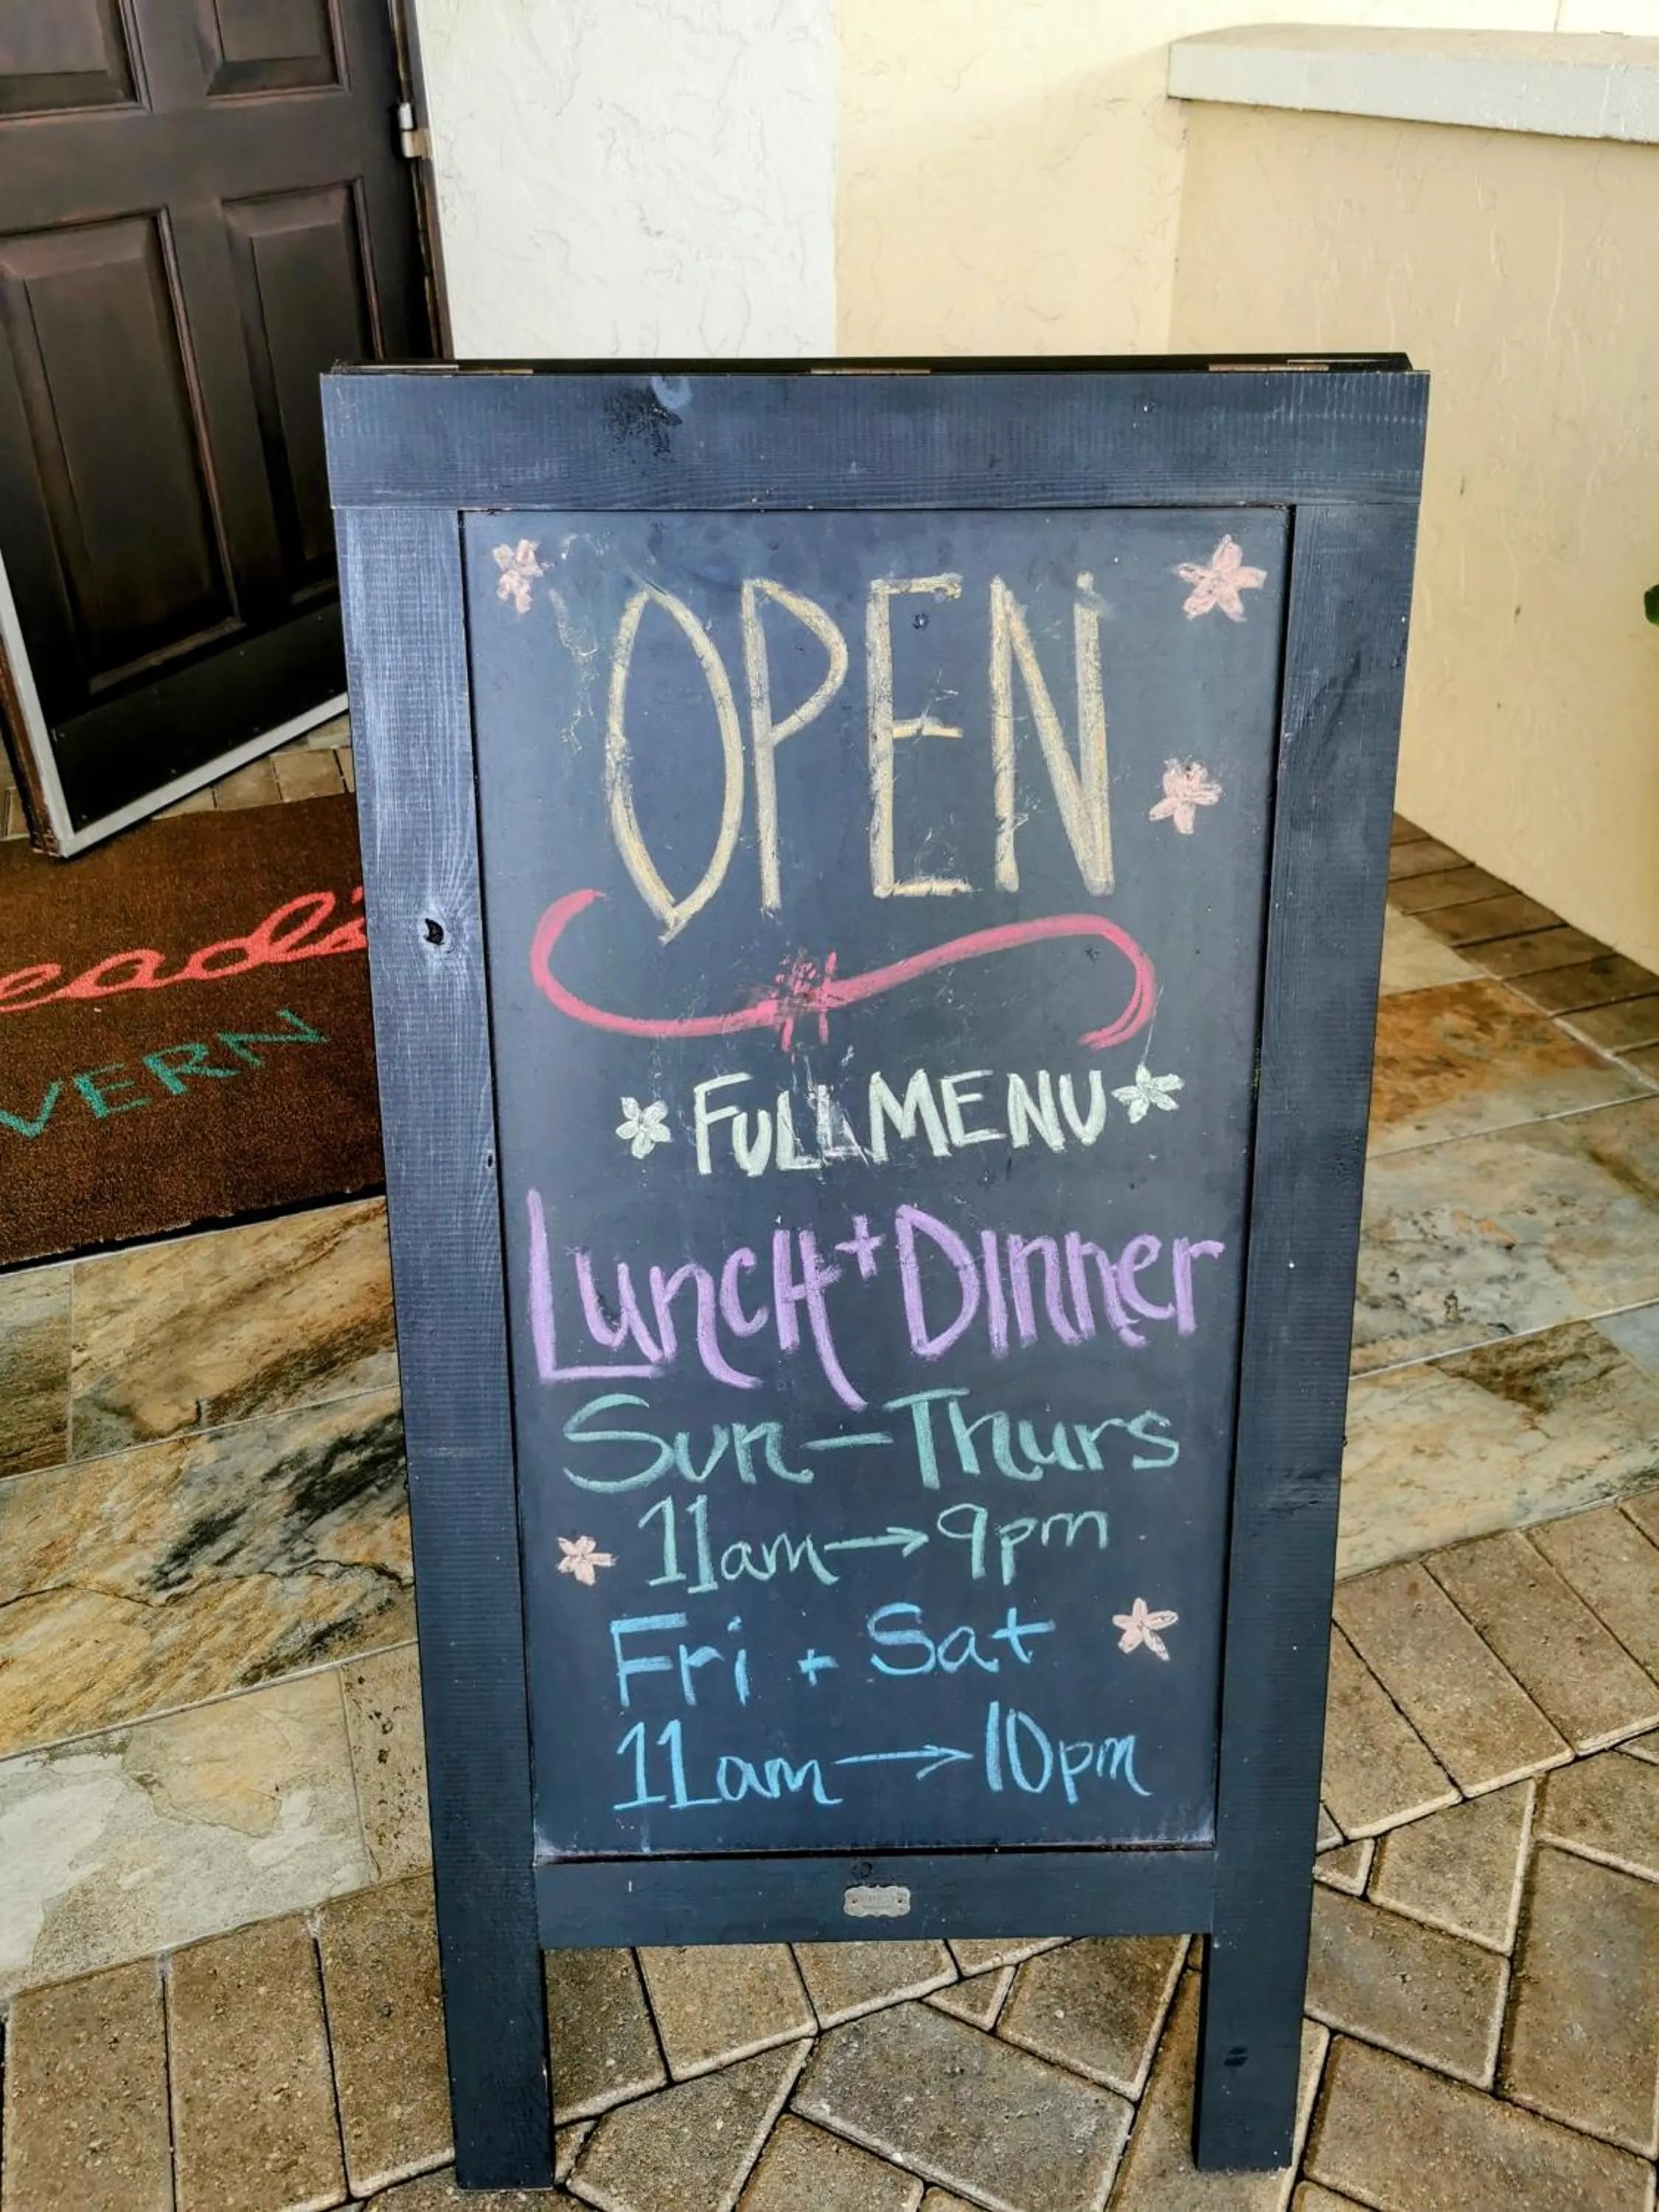 OPEN
*FULL MENU*
Lunch + Dinner
Sun - Thurs
11am → 9pm
Fri + Sat
11am → 10pm
eadi
VERN